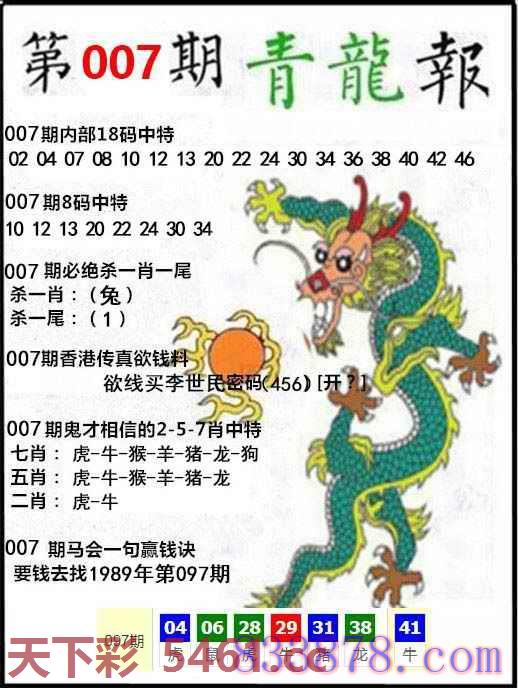 第007期青龍報
007期内部18码中特
02 04 07 08 10 12 13 20 22 24 30 34 36 38 40 42 46
007期8码中特
10 12 13 20 22 24 30 34
007 期必绝杀一肖一尾
杀一肖：(兔)
杀一尾：(1)
007期香港传真欲钱料
欲线买李世民密码(456) [开?]
007期鬼才相信的2-5-7肖中特
七肖：虎-牛-猴-羊-猪-龙-狗
五肖：虎-牛-猴-羊-猪-龙
二肖：虎-牛
007 期马会一句赢钱诀
要钱去找1989年第097期
097期 04 06 28 29 31 38 41
虎 鼠 虎 牛 猪 龙 牛
天下彩 5461.cc
838878.com